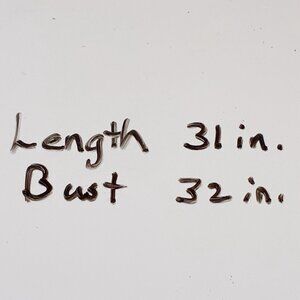 Length 31 in.
Bust 32 in.